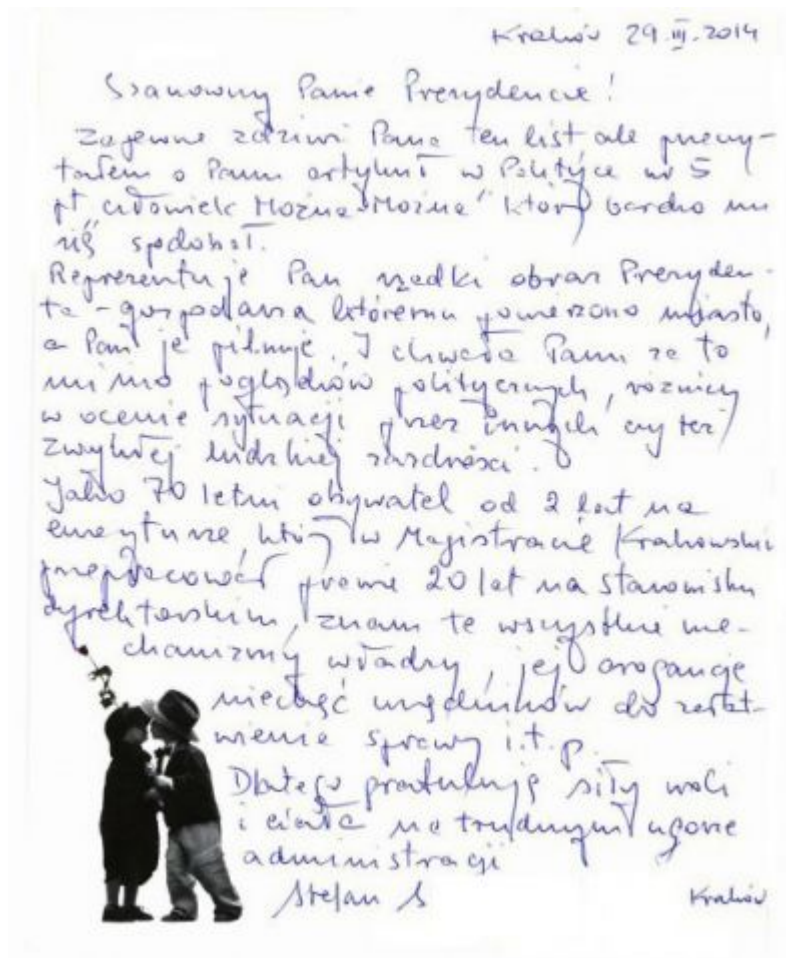 Kraków 29.III.2014
Szanowny Panie Prezydencie!
Zapewne zdziwi Pana ten list ale przeczy-
tałem o Panu artykuł w Polityce nr 5
pt „Człowiek Można Można" który bardzo mi
się spodobał.
Reprezentuje Pan rzadki obraz Prezyden-
ta - gospodarza któremu powierzono miasto,
a Pan je pilnuje. I chwała Panu za to
mimo poglądów politycznych, różnicy
w ocenie sytuacji przez innych czy też
zwykłej ludzkiej zazdrości.
Jako 70 letni obywatel od 2 lat na
emeryturze, który w Magistracie Krakowskim
przepracował prawie 20 lat na stanowisku
dyrektorskim, znam te wszystkie me-
chanizmy władzy, jej arogancję
niechęć urzędników do załat-
wienia sprawy i.t.p.
Dlatego gratuluję siły woli
i ciała na trudnym ugorze
administracji
Stefan S
Kraków